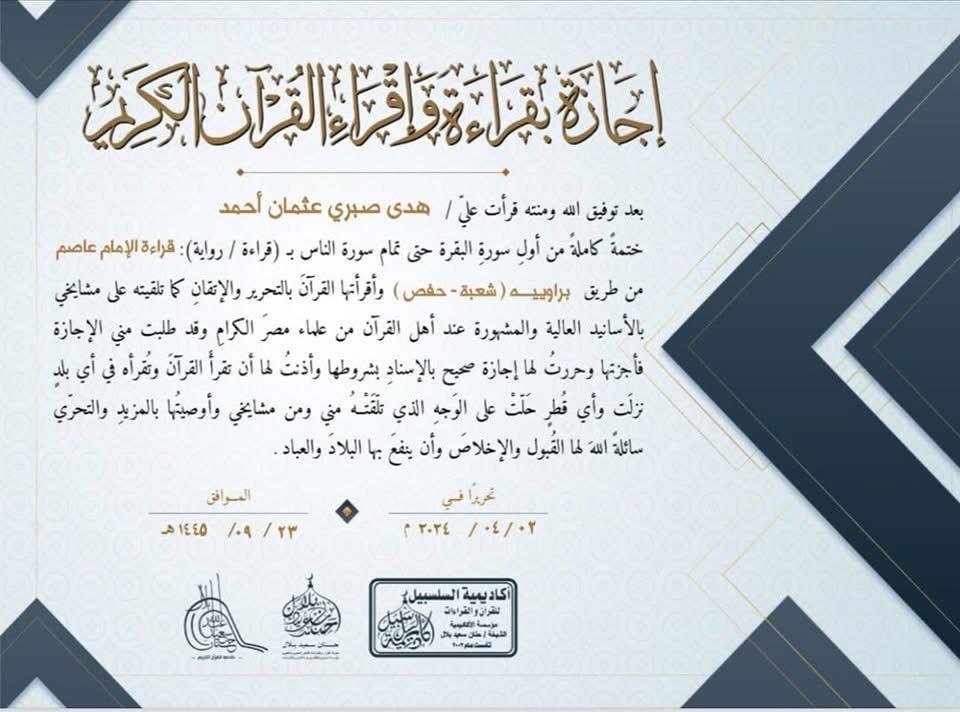 إِجَازَة بِقِرَاءَة وَإِقْرَاءِ القُرْآن الكَرِيم
بعد توفيق الله ومنته قرأت عليّ / هدى صبري عثمان أحمد
ختمةً كاملةً من أولِ سورةِ البقرة حتى تمام سورة الناس بـ (قراءة / رواية): قراءة الإمام عاصم
من طريق براوييه ( شعبة - حفص ) وأقرأتها القرآنَ بالتحرير والإتقانِ كما تلقيته على مشايخي
بالأسانيد العالية والمشهورة عند أهل القرآن من علماء مصرَ الكرامِ وقد طلبت مني الإجازة
فأجزتها وحررتُ لها إجازة صحيح بالإسنادِ بشروطها وأذنتُ لها أن تقرأَ القرآنَ وتُقرأه في أي بلدٍ
نزلَت وأي قُطرٍ حَلّتْ على الوَجهِ الذي تلّقَتْـهُ مني ومن مشايخي وأوصيتُها بالمزيدِ والتحرّي
سائلةً اللهَ لها القُبول والإخلاصَ وأن ينفعَ بها البلادَ والعباد .
تحريرًا فـي
٠٢ / ٠٤ / ٢٠٢٤ م
المـوافق
٢٣ / ٠٩ / ١٤٤٥ هـ
أكاديمية السلسبيل
للقرآن والقراءات
مؤسسة الأكاديمية
الشيخة / حنان سعيد بلال
تأسست عام ٢٠٠٢
حنـان سعيد بـلال